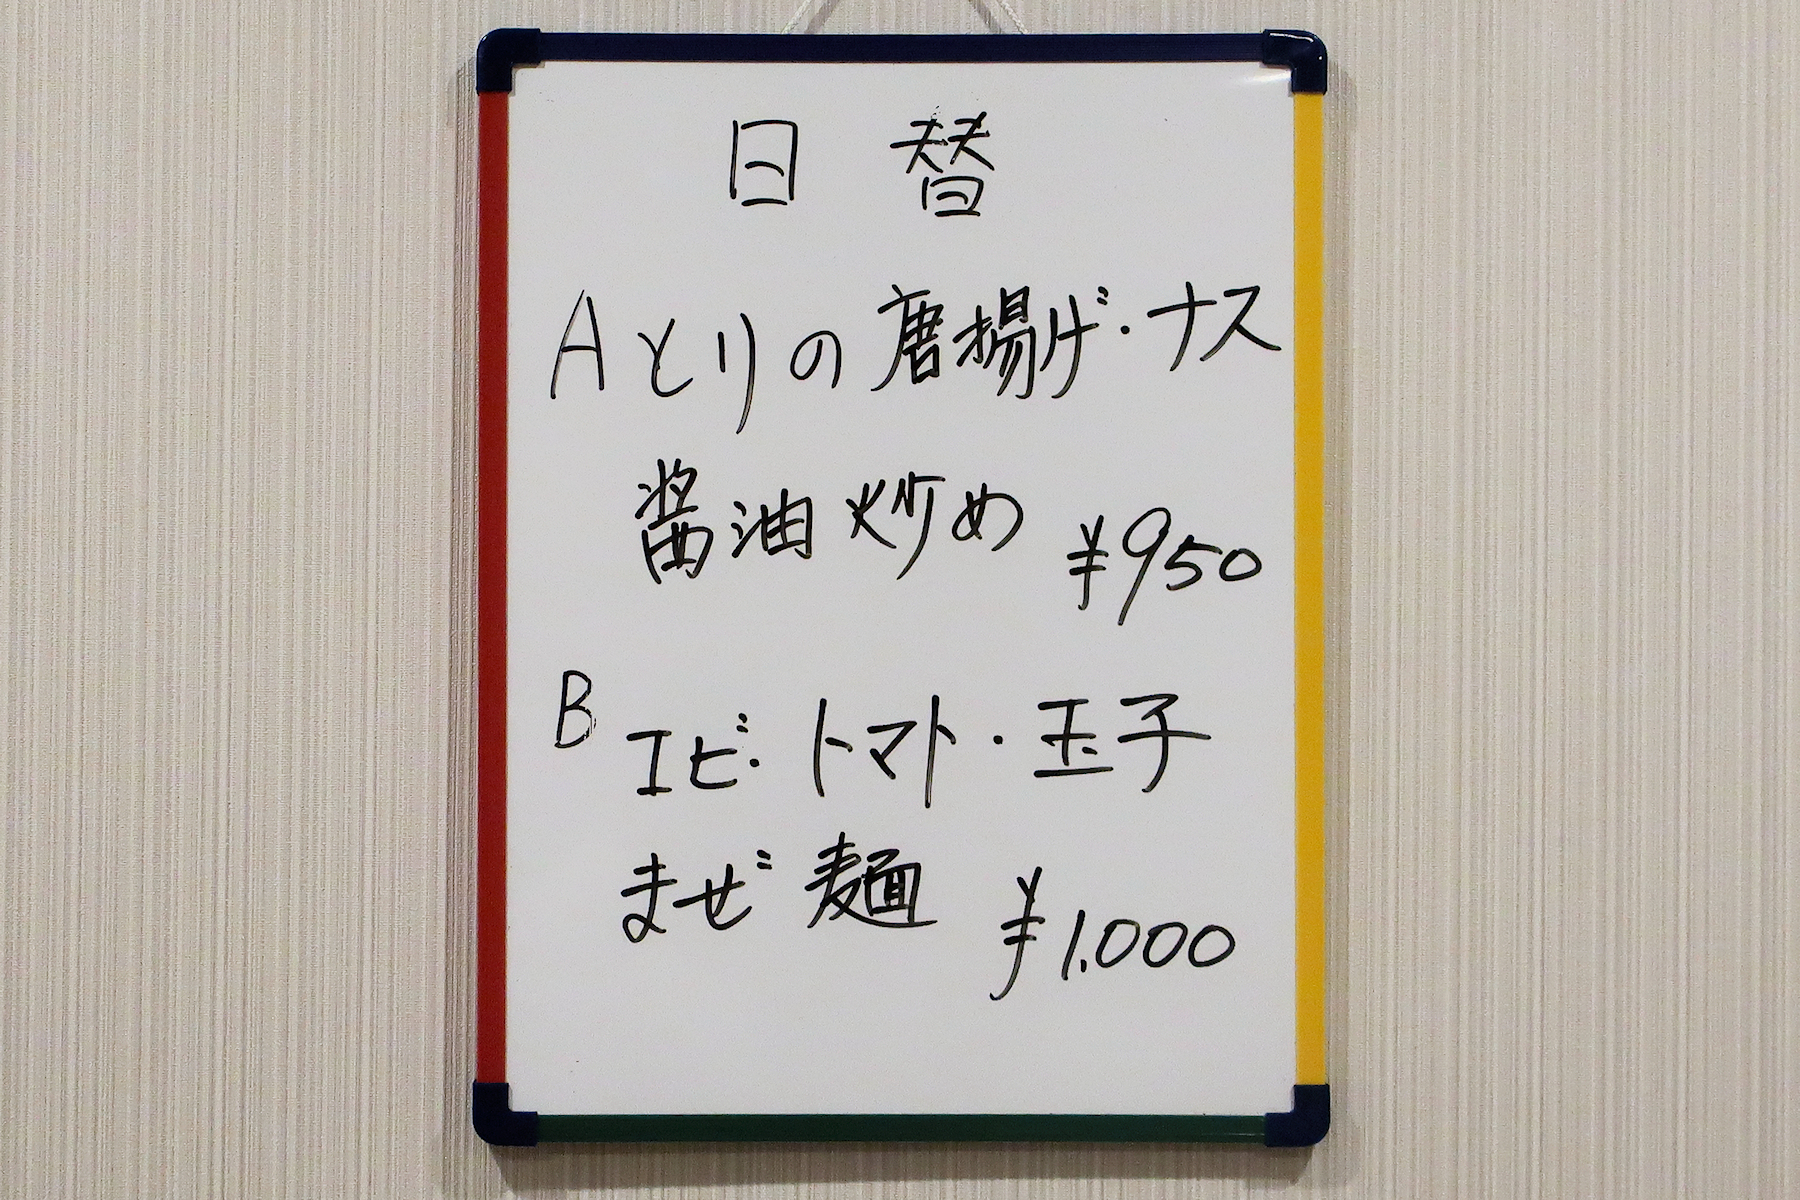 日替
Aとりの唐揚げ・ナス
醤油炒め ¥950
B エビ・トマト・玉子
まぜ麺 ¥1,000